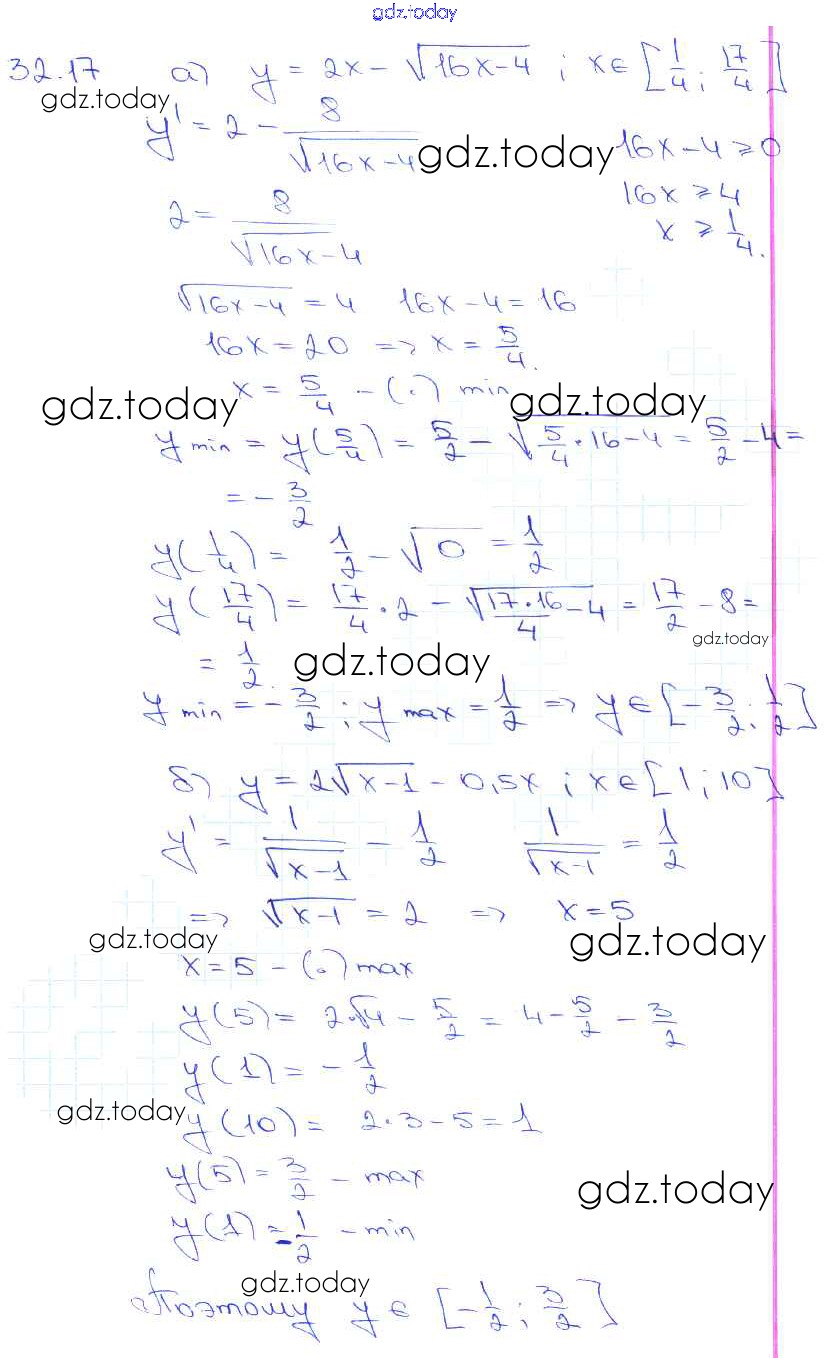 gdz.today
32.17 а) y = 2x - √(16x-4) ; x∈[1/4 ; 17/4]
gdz.today
y' = 2 - 8/√(16x-4) gdz.today 16x-4 ⩾ 0
16x ⩾ 4
2 = 8/√(16x-4) x ⩾ 1/4.
√(16x-4) = 4 16x-4 = 16
16x = 20 => x = 5/4.
x = 5/4 - (·) min
gdz.today gdz.today
y min = y(5/4) = 5/2 - √(5/4·16-4) = 5/2 - 4 =
= -3/2
y(1/4) = 1/2 - √0 = 1/2
y(17/4) = 17/4·2 - √(17·16/4-4) = 17/2 - 8 =
gdz.today
= 1/2. gdz.today
y min = -3/2 ; y max = 1/2 => y∈[-3/2 ; 1/2]
б) y = 2√(x-1) - 0,5x ; x∈[1 ; 10]
y' = 1/√(x-1) - 1/2 1/√(x-1) = 1/2
=> √(x-1) = 2 => x = 5
gdz.today gdz.today
x = 5 - (·) max
y(5) = 2·√4 - 5/2 = 4 - 5/2 - 3/2
y(1) = -1/2
gdz.today
y(10) = 2·3 - 5 = 1
y(5) = 3/2 - max
gdz.today
y(1) = -1/2 - min
gdz.today
Поэтому y∈[-1/2 ; 3/2]